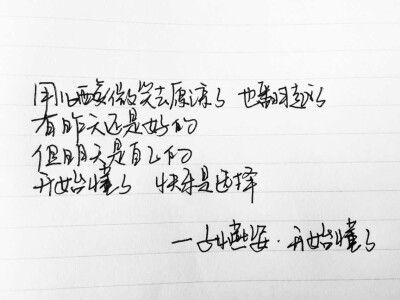 用心酸微笑去原谅了 也翻越了
有昨天还是好的
但明天是自己的
开始懂了 快乐是选择
—孙燕姿·开始懂了